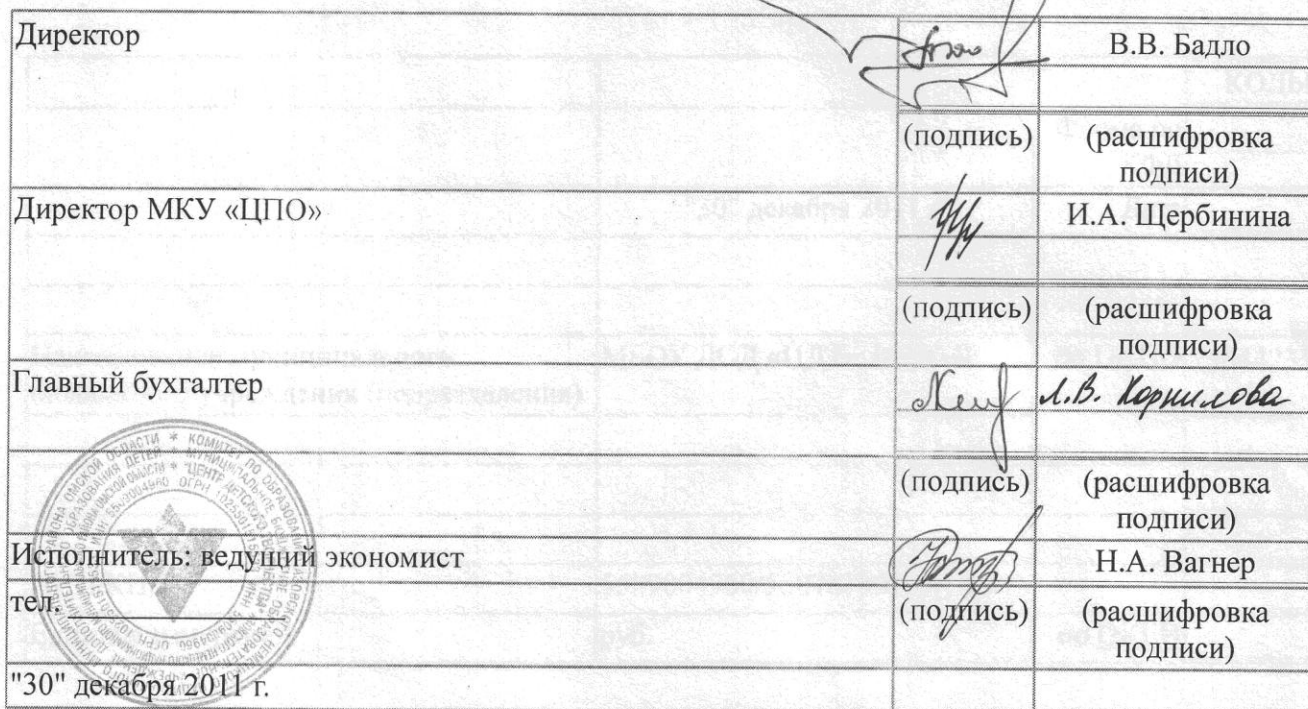 Директор
В.В. Бадло
(подпись)
(расшифровка
подписи)
Директор МКУ «ЦПО»
И.А. Щербинина
(подпись)
(расшифровка
подписи)
Главный бухгалтер
Л.В. Корнилова
(подпись)
(расшифровка
подписи)
Исполнитель: ведущий экономист
Н.А. Вагнер
тел.
(подпись)
(расшифровка
подписи)
"30" декабря 2011 г.